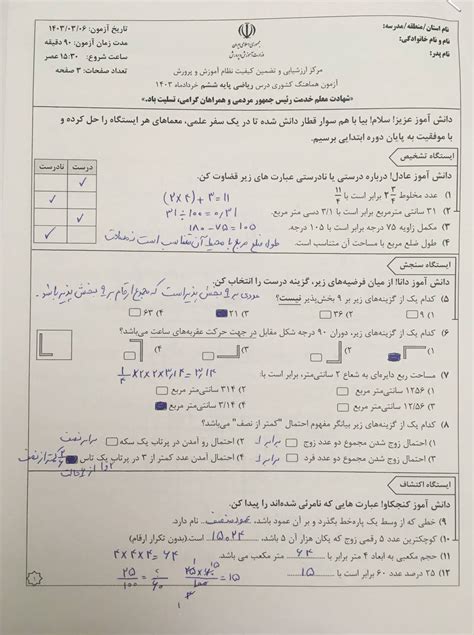 نام استان/منطقه/مدرسه:
نام و نام خانوادگی:
نام پدر:
جمهوری اسلامی ایران
وزارت آموزش و پرورش
تاریخ آزمون: ۱۴۰۳/۰۳/۰۶
مدت زمان آزمون: ۹۰ دقیقه
ساعت شروع: ۱۵:۳۰ عصر
تعداد صفحات: ۳ صفحه
مرکز ارزشیابی و تضمین کیفیت نظام آموزش و پرورش
آزمون هماهنگ کشوری درس ریاضی پایه ششم خردادماه ۱۴۰۳
«شهادت معلم خدمت رئیس جمهور مردمی و همراهان گرامی، تسلیت باد.»
دانش آموز عزیز! سلام! بیا با هم سوار قطار دانش شده تا در یک سفر علمی، معماهای هر ایستگاه را حل کرده و
با موفقیت به پایان دوره ابتدایی برسیم.
ایستگاه تشخیص
دانش آموز عادل! درباره درستی یا نادرستی عبارت های زیر قضاوت کن.
درست نادرست
۱) عدد مخلوط ۲ ۳/۴ برابر است با ۱۱/۴ (۲×۴)+۳=۱۱
۲) ۳۱ سانتی مترمربع برابر است با ۳/۱ دسی متر مربع. ۳۱÷۱۰۰=۰/۳۱
۳) مکمل زاویه ۷۵ درجه برابر است با ۱۰۵ درجه. ۱۸۰-۷۵=۱۰۵
۴) طول ضلع مربع با مساحت آن متناسب است. طول ضلع مربع با محیط آن متناسب است نه مساحت
ایستگاه سنجش
دانش آموز دانا! از میان فرضیه‌های زیر، گزینه درست را انتخاب کن.
۵) کدام یک از گزینه‌های زیر بر ۹ بخش‌پذیر نیست؟ عددی بر ۹ بخش پذیر است که مجموع ارقام بر ۹ بخش پذیر باشد.
۱) ۹ ۲) ۳۶ ۳) ۲۱ ۴) ۶۳
۶) کدام یک از گزینه‌های زیر، دوران ۹۰ درجه شکل مقابل در جهت حرکت عقربه‌های ساعت می‌باشد؟
۱) ۲) ۳) ۴)
۷) مساحت ربع دایره‌ای به شعاع ۲ سانتی‌متر، برابر است با: ۱/۴×۲×۲×۳/۱۴=۳/۱۴
۱) ۱۲۵۶ سانتی‌متر مربع ۲) ۳۱۴ سانتی‌متر مربع
۳) ۱۲/۵۶ سانتی‌متر مربع ۴) ۳/۱۴ سانتی‌متر مربع
۸) کدام یک از گزینه‌های زیر بیانگر مفهوم احتمال "کمتر از نصف" می‌باشد؟
۱) احتمال زوج شدن مجموع دو عدد زوج برابر ۱ ۲) احتمال رو آمدن در پرتاب یک سکه برابر نصف
۳) احتمال فرد شدن مجموع دو عدد فرد ۴) احتمال آمدن عدد کمتر از ۳ در پرتاب یک تاس
ایستگاه اکتشاف
دانش آموز کنجکاو! عبارت هایی که نامرئی شده‌اند را پیدا کن.
۹) خطی که از وسط یک پاره‌خط بگذرد و بر آن عمود باشد، عمودمنصف نام دارد.
۱۰) کوچکترین عدد ۵ رقمی زوج که یکان هزار آن ۵ باشد، ۱۵۰۲۴ است.(بدون تکرار ارقام)
۱۱) حجم مکعبی به ابعاد ۴ متر برابر با ۶۴ متر مکعب می باشد. ۴×۴×۴=۶۴
۱۲) ۲۵ درصد عدد ۶۰ برابر است با ۱۵
۲۵/۱۰۰=؟/۶۰ ۲۵×۶۰/۱۰۰=۱۵
۱